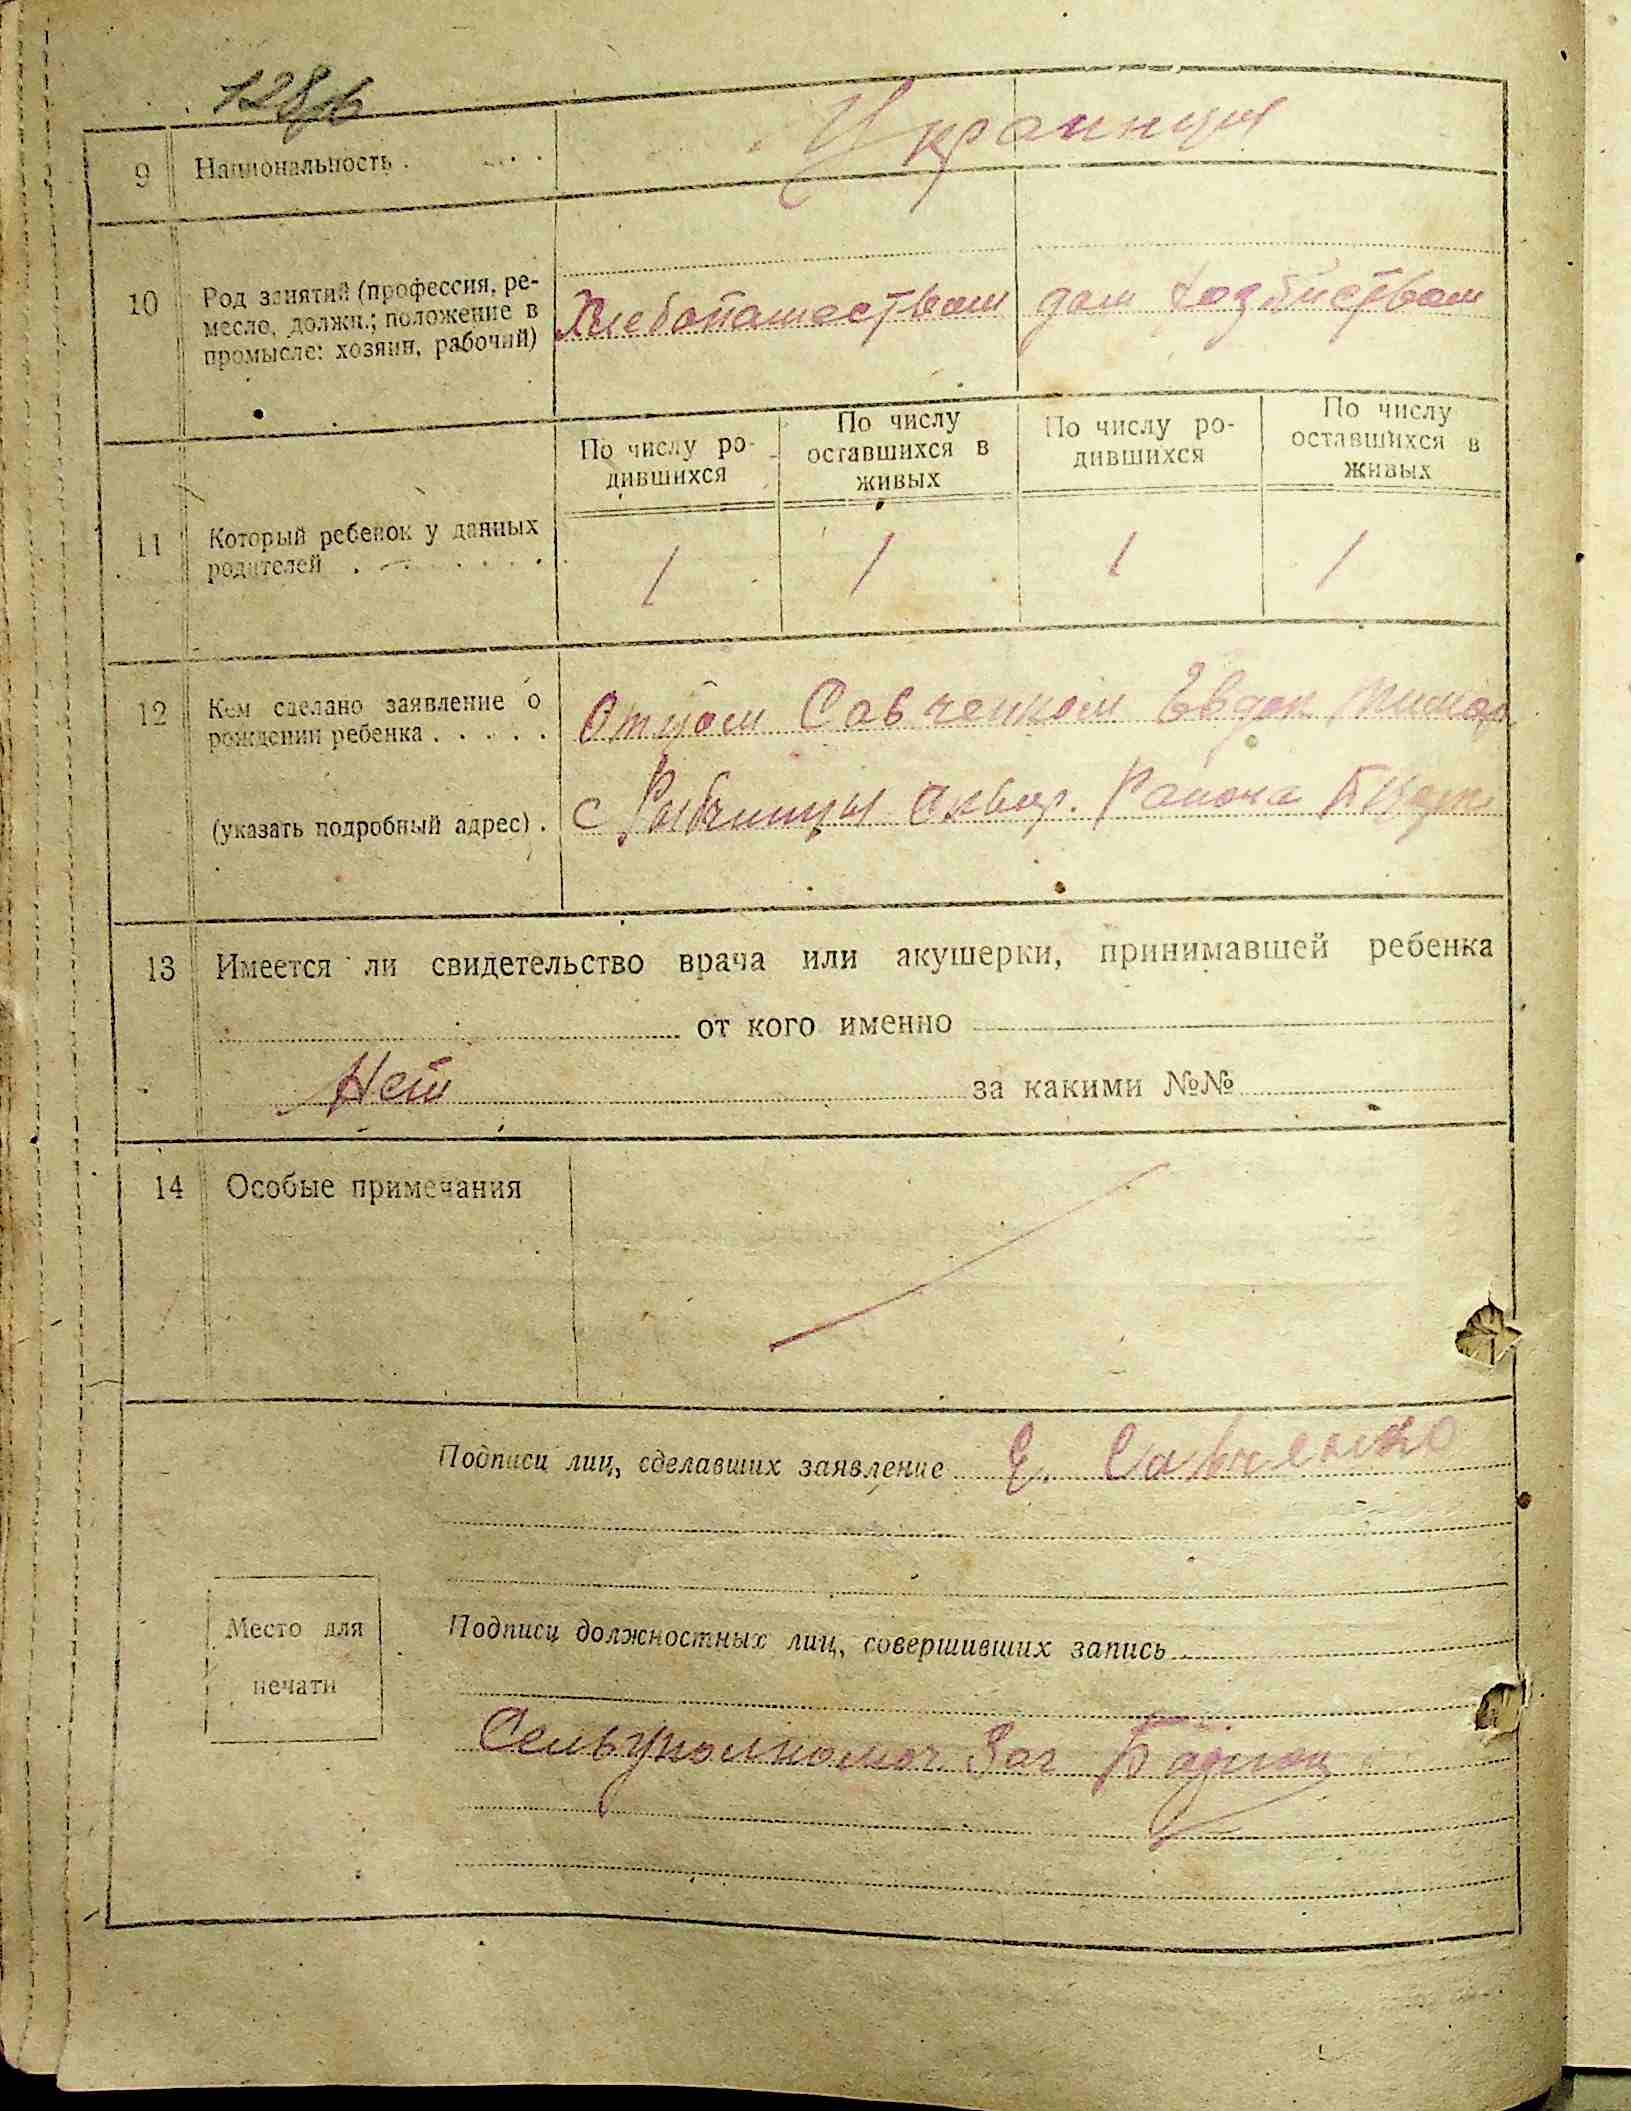 9 Национальность . . . . Украинцы
10 Род занятий (профессия, ре-
месло, должн.; положение в
промысле: хозяин, рабочий)
Хлебопашеством дом хозяйством
По числу ро-
дившихся
По числу
оставшихся в
живых
По числу ро-
дившихся
По числу
оставшихся в
живых
11 Который ребенок у данных
родителей . . . . . . .
1 1 1 1
12 Кем сделано заявление о
рождении ребенка . . . . .
Отцом Савченком Евдок
(указать подробный адрес) .
с Рыбчинцы Района
13 Имеется ли свидетельство врача или акушерки, принимавшей ребенка
от кого именно
Нет за какими №№
14 Особые примечания
Подписи лиц, сделавших заявление Е. Савченко
Место для
печати
Подписи должностных лиц, совершивших запись
Сельуполномоч Заг